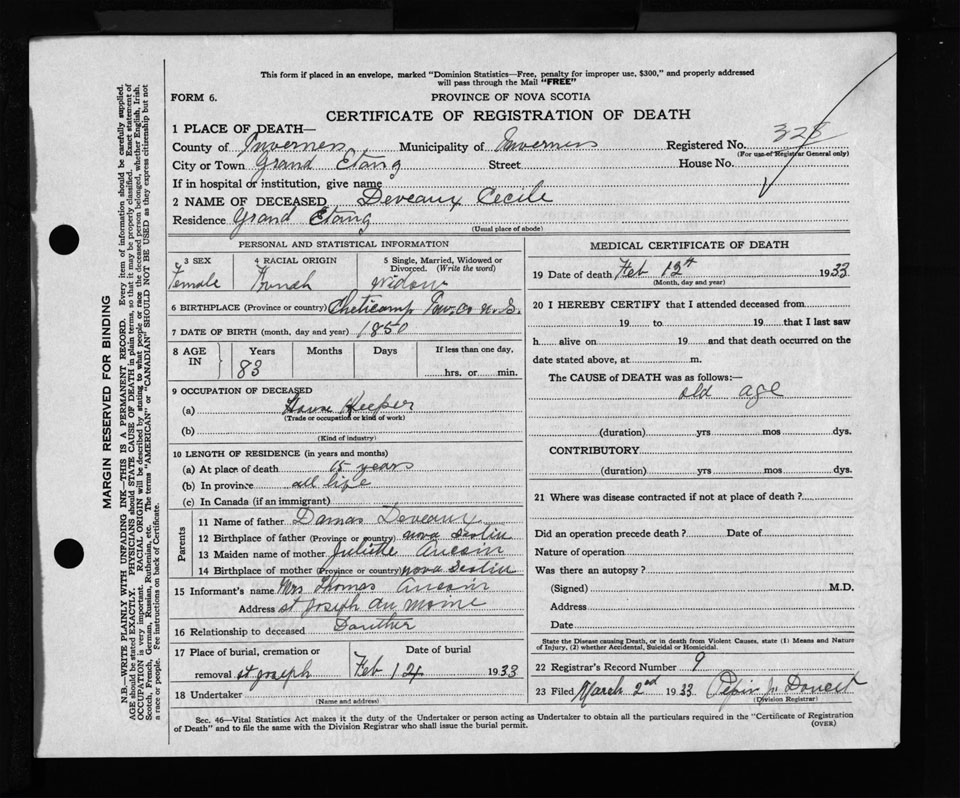 This form if placed in an envelope, marked "Dominion Statistics—Free, penalty for improper use, $300," and properly addressed
will pass through the Mail "FREE"
FORM 6.
PROVINCE OF NOVA SCOTIA
CERTIFICATE OF REGISTRATION OF DEATH
1 PLACE OF DEATH—
County of Inverness Municipality of Inverness Registered No. 328
(For use of Registrar General only)
City or Town Grand Etang Street House No.
If in hospital or institution, give name
2 NAME OF DECEASED Deveaux Cecile
Residence Grand Etang
(Usual place of abode)
PERSONAL AND STATISTICAL INFORMATION
3 SEX 4 RACIAL ORIGIN 5 Single, Married, Widowed or
Divorced. (Write the word)
Female French widow
6 BIRTHPLACE (Province or country) Cheticamp Inv. Co N.S.
7 DATE OF BIRTH (month, day and year) 1850
8 AGE IN Years Months Days If less than one day,
83 hrs. or min.
9 OCCUPATION OF DECEASED
(a) House Keeper
(Trade or occupation or kind of work)
(b)
(Kind of industry)
10 LENGTH OF RESIDENCE (in years and months)
(a) At place of death 15 years
(b) In province all life
(c) In Canada (if an immigrant)
Parents
11 Name of father Damas Deveaux
12 Birthplace of father (Province or country) nova Scotia
13 Maiden name of mother Juliette
14 Birthplace of mother (Province or country) nova Scotia
15 Informant's name Mrs Thomas
Address St Joseph du Moine
16 Relationship to deceased
17 Place of burial, cremation or Date of burial
removal st joseph Feb 14 1933
18 Undertaker
(Name and address)
MEDICAL CERTIFICATE OF DEATH
19 Date of death Feb 12th 1933
(Month, day and year)
20 I HEREBY CERTIFY that I attended deceased from
19 to 19 that I last saw
h alive on 19 and that death occurred on the
date stated above, at m.
The CAUSE of DEATH was as follows:—
old age
(duration) yrs mos dys.
CONTRIBUTORY
(duration) yrs mos dys.
21 Where was disease contracted if not at place of death?
Did an operation precede death? Date of
Nature of operation
Was there an autopsy?
(Signed) M.D.
Address
Date
State the Disease causing Death, or in death from Violent Causes, state (1) Means and Nature
of Injury, (2) whether Accidental, Suicidal or Homicidal.
22 Registrar's Record Number 9
23 Filed March 2nd 1933
(Division Registrar)
Sec. 46—Vital Statistics Act makes it the duty of the Undertaker or person acting as Undertaker to obtain all the particulars required in the "Certificate of Registration
of Death" and to file the same with the Division Registrar who shall issue the burial permit.
(OVER)
MARGIN RESERVED FOR BINDING
N.B.—WRITE PLAINLY WITH UNFADING INK—THIS IS A PERMANENT RECORD. Every item of information should be carefully supplied.
AGE should be stated EXACTLY. PHYSICIANS should STATE CAUSE OF DEATH in plain terms, so that it may be properly classified. Exact statement of
OCCUPATION is very important. RACIAL ORIGIN will be described by stating to what people or race the deceased person belonged, whether English, Irish,
Scotch, French, German, Russian, Ruthenian, etc. The terms "AMERICAN" or "CANADIAN" SHOULD NOT BE USED as they express citizenship but not
a race or people. See instructions on back of Certificate.